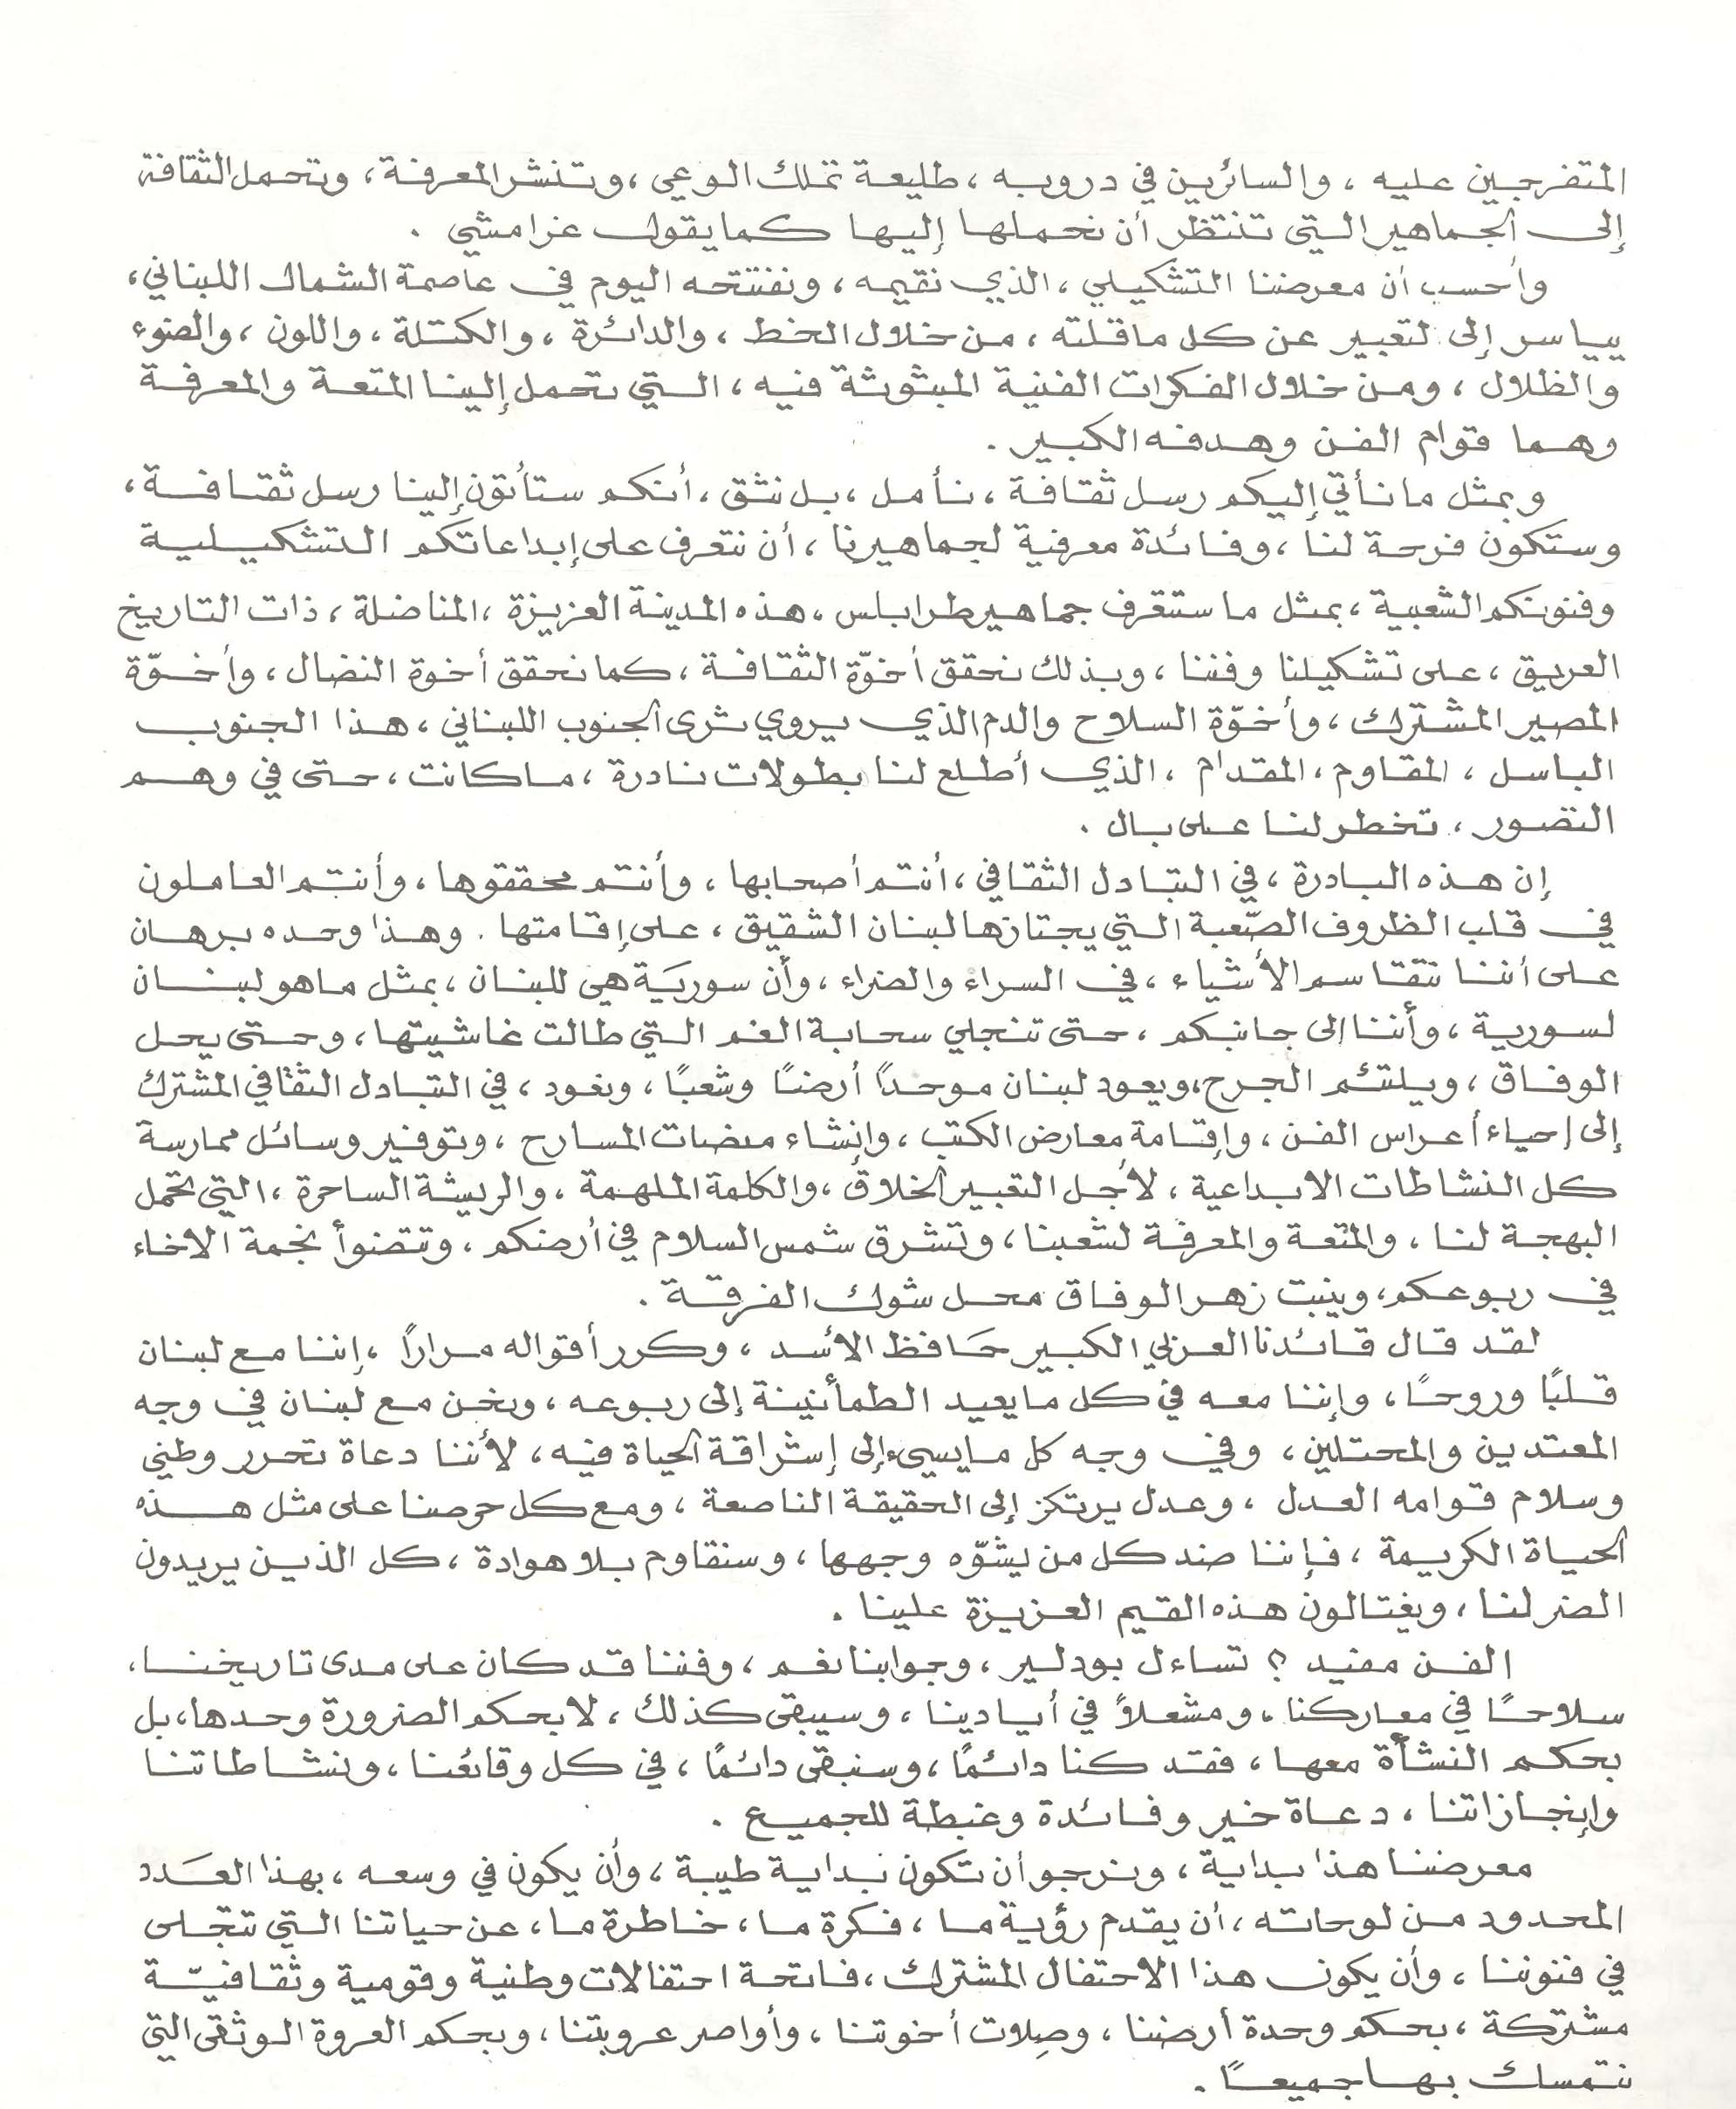 المتفرجين عليه ، والسائرين في دروبه ، طليعة تملك الوعي ، وتنشر المعرفة ، وتحمل الثقافة
إلى الجماهير التي تنتظر أن نحملها إليها كما يقول غرامشي .
وأحسب أن معرضنا التشكيلي ، الذي نقيمه ، ونفتتحه اليوم في عاصمة الشمال اللبناني ،
إلى لتعبير عن كل ما قلته ، من خلال الخط ، والدائرة ، والكتلة ، واللون ، والضوء
والظلال ، ومن خلال الفكرات الفنية المبثوثة فيه ، التي تحمل إلينا المتعة والمعرفة
وهما قوام الفن وهدفه الكبير .
وبمثل ما نأتي إليكم رسل ثقافة ، نأمل ، بل نثق ، أنكم ستأتون إلينا رسل ثقافة ،
وستكون فرحة لنا ، وفائدة معرفية لجماهيرنا ، أن نتعرف على إبداعاتكم التشكيلية
وفنونكم الشعبية ، بمثل ما ستتعرف جماهير طرابلس ، هذه المدينة العزيزة ، المناضلة ، ذات التاريخ
العريق ، على تشكيلنا وفننا ، وبذلك نحقق أخوّة الثقافة ، كما نحقق أخوة النضال ، وأخوّة
المصير المشترك ، وأخوّة السلاح والدم الذي يروي ثرى الجنوب اللبناني ، هذا الجنوب
الباسل ، المقاوم ، المقدام ، الذي أطلع لنا بطولات نادرة ، ما كانت ، حتى في وهم
التصور ، تخطر لنا على بال .
إن هذه البادرة ، في التبادل الثقافي ، أنتم أصحابها ، وأنتم محققوها ، وأنتم العاملون
في قلب الظروف الصّعبة التي يجتازها لبنان الشقيق ، على إقامتها . وهذا وحده برهان
على أننا نتقاسم الأشياء ، في السراء والضراء ، وأن سوريَة هي للبنان ، بمثل ما هو لبنان
لسورية ، وأننا إلى جانبكم ، حتى تنجلي سحابة الغم التي طالت غاشيتها ، وحتى يحل
الوفاق ، ويلتئم الجرح ، ويعود لبنان موحدًا أرضًا وشعبًا ، ونعود ، في التبادل الثقافي المشترك
إلى إحياء أعراس الفن ، وإقامة معارض الكتب ، وإنشاء منصات المسارح ، وتوفير وسائل ممارسة
كل النشاطات الابداعية ، لأجل التعبير الخلاق ، والكلمة الملهمة ، والريشة الساحرة ، التي تحمل
البهجة لنا ، والمتعة والمعرفة لشعبنا ، وتشرق شمس السلام في أرضكم ، وتتضوأ نجمة الاخاء
في ربوعكم ، وينبت زهر الوفاق محل شوك الفرقة .
لقد قال قائدنا العربي الكبير حَافظ الأسد ، وكرر أقواله مرارًا ، إننا مع لبنان
قلبًا وروحًا ، وإننا معه في كل ما يعيد الطمأنينة إلى ربوعه ، ونحن مع لبنان في وجه
المعتدين والمحتلين ، وفي وجه كل ما يسيء إلى إشراقة الحياة فيه ، لأننا دعاة تحرر وطني
وسلام قوامه العدل ، وعدل يرتكز إلى الحقيقة الناصعة ، ومع كل حرصنا على مثل هذه
الحياة الكريمة ، فإننا ضد كل من يشوّه وجهها ، وسنقاوم بلا هوادة ، كل الذين يريدون
الضر لنا ، ويغتالون هذه القيم العزيزة علينا .
الفن مفيد ؟ تساءل بودلير ، وجوابنا نعم ، وفننا قد كان على مدى تاريخنا ،
سلاحًا في معاركنا ، ومشعلاً في أيادينا ، وسيبقى كذلك ، لا بحكم الضرورة وحدها ، بل
بحكم النشأة معها ، فقد كنا دائمًا ، وسنبقى دائمًا ، في كل وقائعنا ، ونشاطاتنا
وإنجازاتنا ، دعاة خير وفائدة وغبطة للجميع .
معرضنا هذا بداية ، ونرجو أن تكون بداية طيبة ، وأن يكون في وسعه ، بهذا العَدد
المحدود من لوحاته ، أن يقدم رؤية ما ، فكرة ما ، خاطرة ما ، عن حياتنا التي تتجّلى
في فنوننا ، وأن يكون هذا الاحتفال المشترك ، فاتحة احتفالات وطنية وقومية وثقافيّة
مشتركة ، بحكم وحدة أرضنا ، وصِلات أخوتنا ، وأواصر عروبتنا ، وبحكم العروة الوثقى التي
نتمسك بها جميعًا .